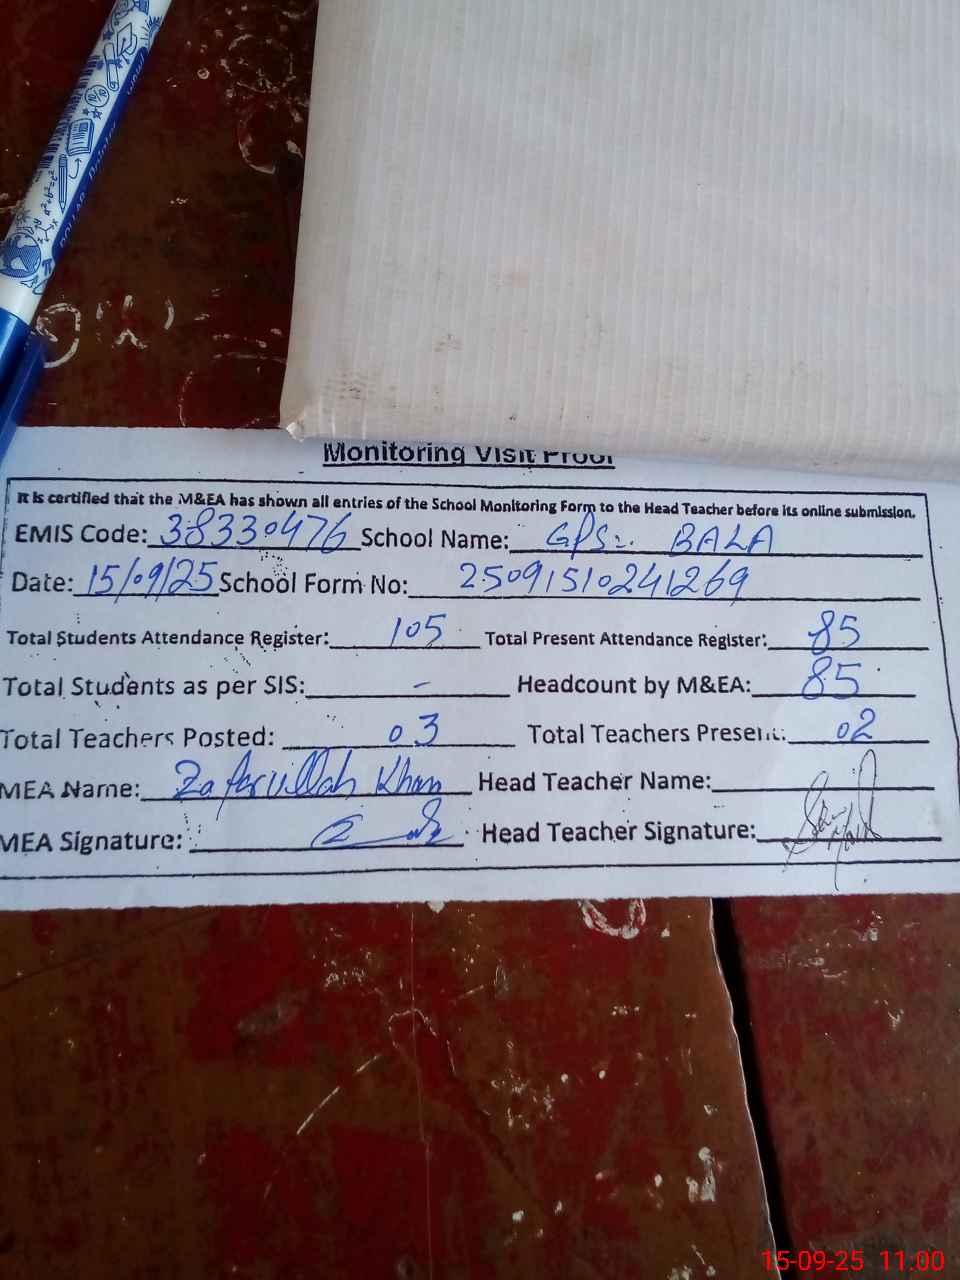 DOLLAR Pointer
a²+b²=c²
Monitoring Visit Proof
It is certified that the M&EA has shown all entries of the School Monitoring Form to the Head Teacher before its online submission.
EMIS Code: 38330476 School Name: GPS:. BALA
Date: 15/09/25 School Form No: 25091510241269
Total Students Attendance Register: 105 Total Present Attendance Register: 85
Total Students as per SIS: - Headcount by M&EA: 85
Total Teachers Posted: 03 Total Teachers Present: 02
MEA Name: Zafarullah Khan Head Teacher Name:
MEA Signature: Head Teacher Signature:
15-09-25 11:00